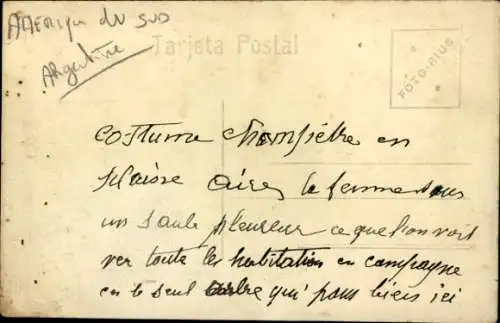 AMERIQUE DU SUD
Argentine
Tarjeta Postal
FOTO-RIUS
costume champêtre en
plaisse aires la ferme sous
un saule pleureur ce que l'on voit
ver toute les habitation en campagne
ce le seul arbre qui pouss biens ici